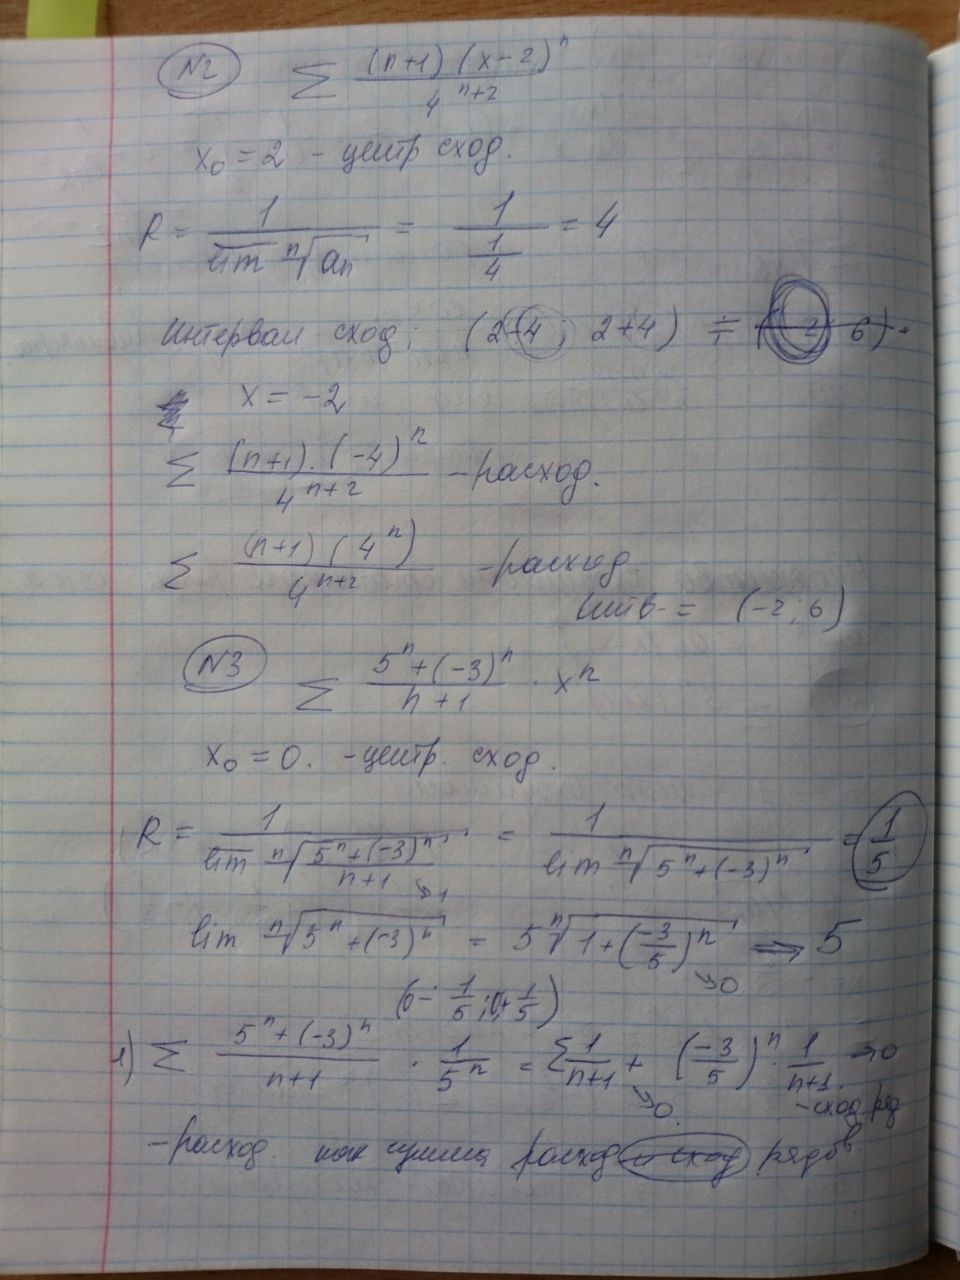 N2 ∑ (n+1)(x-2)^n / 4^(n+2)
x₀ = 2 - центр сход.
R = 1 / (lim ⁿ√aₙ) = 1 / (1/4) = 4
Интервал сход: (2-4; 2+4) = ( 2 6).
x = -2
∑ (n+1)·(-4)^n / 4^(n+2) - расход.
∑ (n+1)(4^n) / 4^(n+2) - расход.
инт = (-2; 6)
N3 ∑ (5^n+(-3)^n) / (n+1) · x^n
x₀ = 0. - центр. сход.
R = 1 / (lim ⁿ√((5^n+(-3)^n)/(n+1))) = 1 / (lim ⁿ√(5^n+(-3)^n)) = 1/5
→1
lim ⁿ√(5^n+(-3)^n) = 5 ⁿ√(1+(-3/5)^n) ⟹ 5
→0
(0-1/5; 0+1/5)
1) ∑ (5^n+(-3)^n)/(n+1) · 1/5^n = ∑ 1/(n+1) + (-3/5)^n · 1/(n+1) →0
→0 - сход ряд
- расход. как сумма расход и сход рядов.